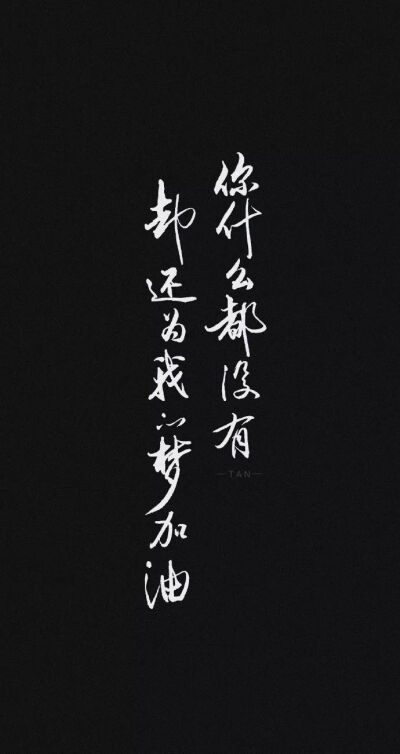 你什么都没有
却还为我的梦加油
—TAN—